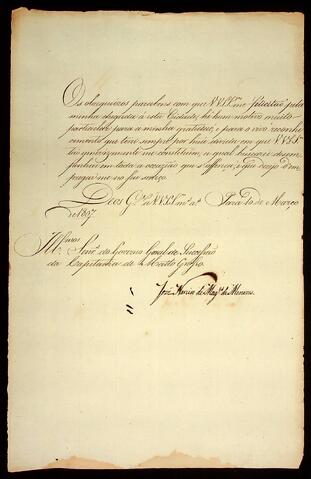 Os obzequiozos parabens com que VVSS.mce felicitão pela
minha chegada á esta Cidade, hé hum motivo muito
particular para a minha gratidaõ, e para o vivo reconhe
cimento que terei sempre por huã divida em que VVSS.
taõ urbanamente me constituem, a qual buscarei desem
penhar em toda a occaziaõ que se offereça, e que dezejo d'em
pregar-me no seu serviço.
Deos G.de a VVSS.m.s a.s Pará 10 de Março
de 1807
Ill.mos
Senr.es do Governo Geral de Successão
da Capitania de Matto Grosso.
José Narciso de Mag.es de Menezes.